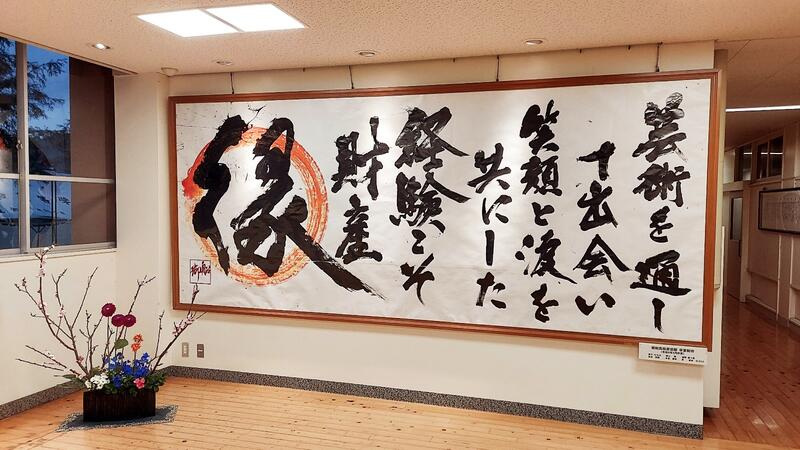 芸術を通し
て出会い
笑顔と涙を
共にした
経験こそ
財産
縁